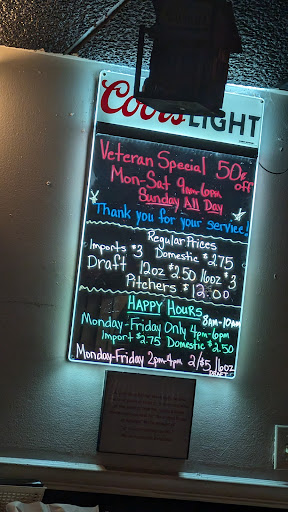 Coors LIGHT
Veteran Special 50¢ off
Mon-Sat 9am-6pm
Sunday All Day
Thank you for your service!
Regular Prices
Imports $3 Domestic $2.75
Draft 12oz $2.50 16oz $3
Pitchers $12.00
HAPPY HOURS
8am-10am
Monday-Friday Only 4pm-6pm
Import $2.75 Domestic $2.50
Monday-Friday 2pm-4pm 2/$5 16oz
DRAFT